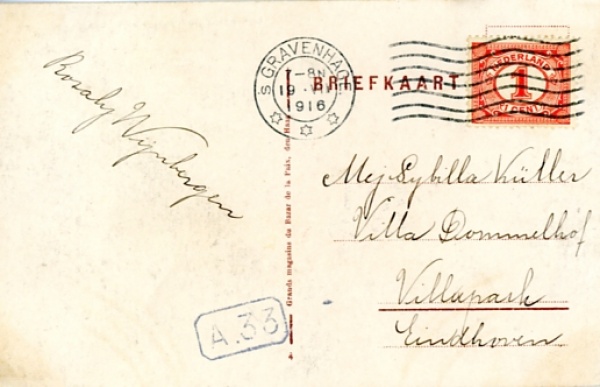 'S GRAVENHAGE
7-8N
19 VII
1916
BRIEFKAART
NEDERLAND
1
CENT
Rosaly Wijnbergen
Mej Sybilla Küller
Villa Dommelhof
Villapark
Eindhoven
Grands magasins du Bazar de la Paix, des Haa
A.33